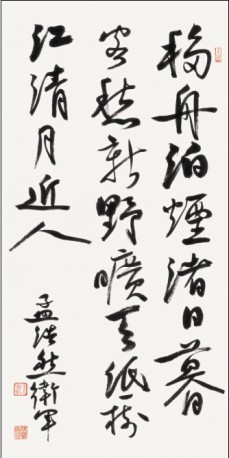 移舟泊煙渚日暮
客愁新野曠天低樹
江清月近人
孟浩然衛軍